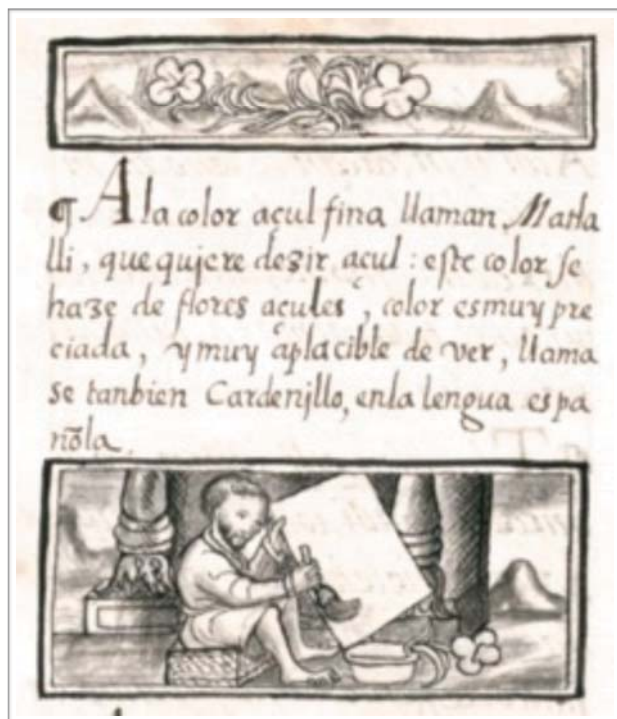 ¶ A la color açul fina llaman Matla
lli, que quiere dezir açul: este color se
haze de flores açules, color es muy pre
ciada, y muy aplacible de ver, llama
se tanbien Cardenjllo, en la lengua espa
ñola.